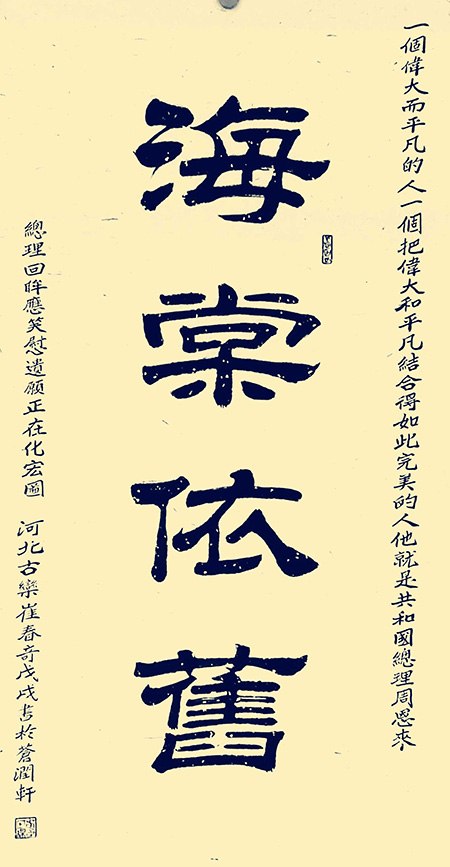 一個偉大而平凡的人一個把偉大和平凡結合得如此完美的人他就是共和國總理周恩來
海棠依舊
總理回眸應笑慰遺願正在化宏圖 河北古欒崔春奇戊戌書於蒼潤軒